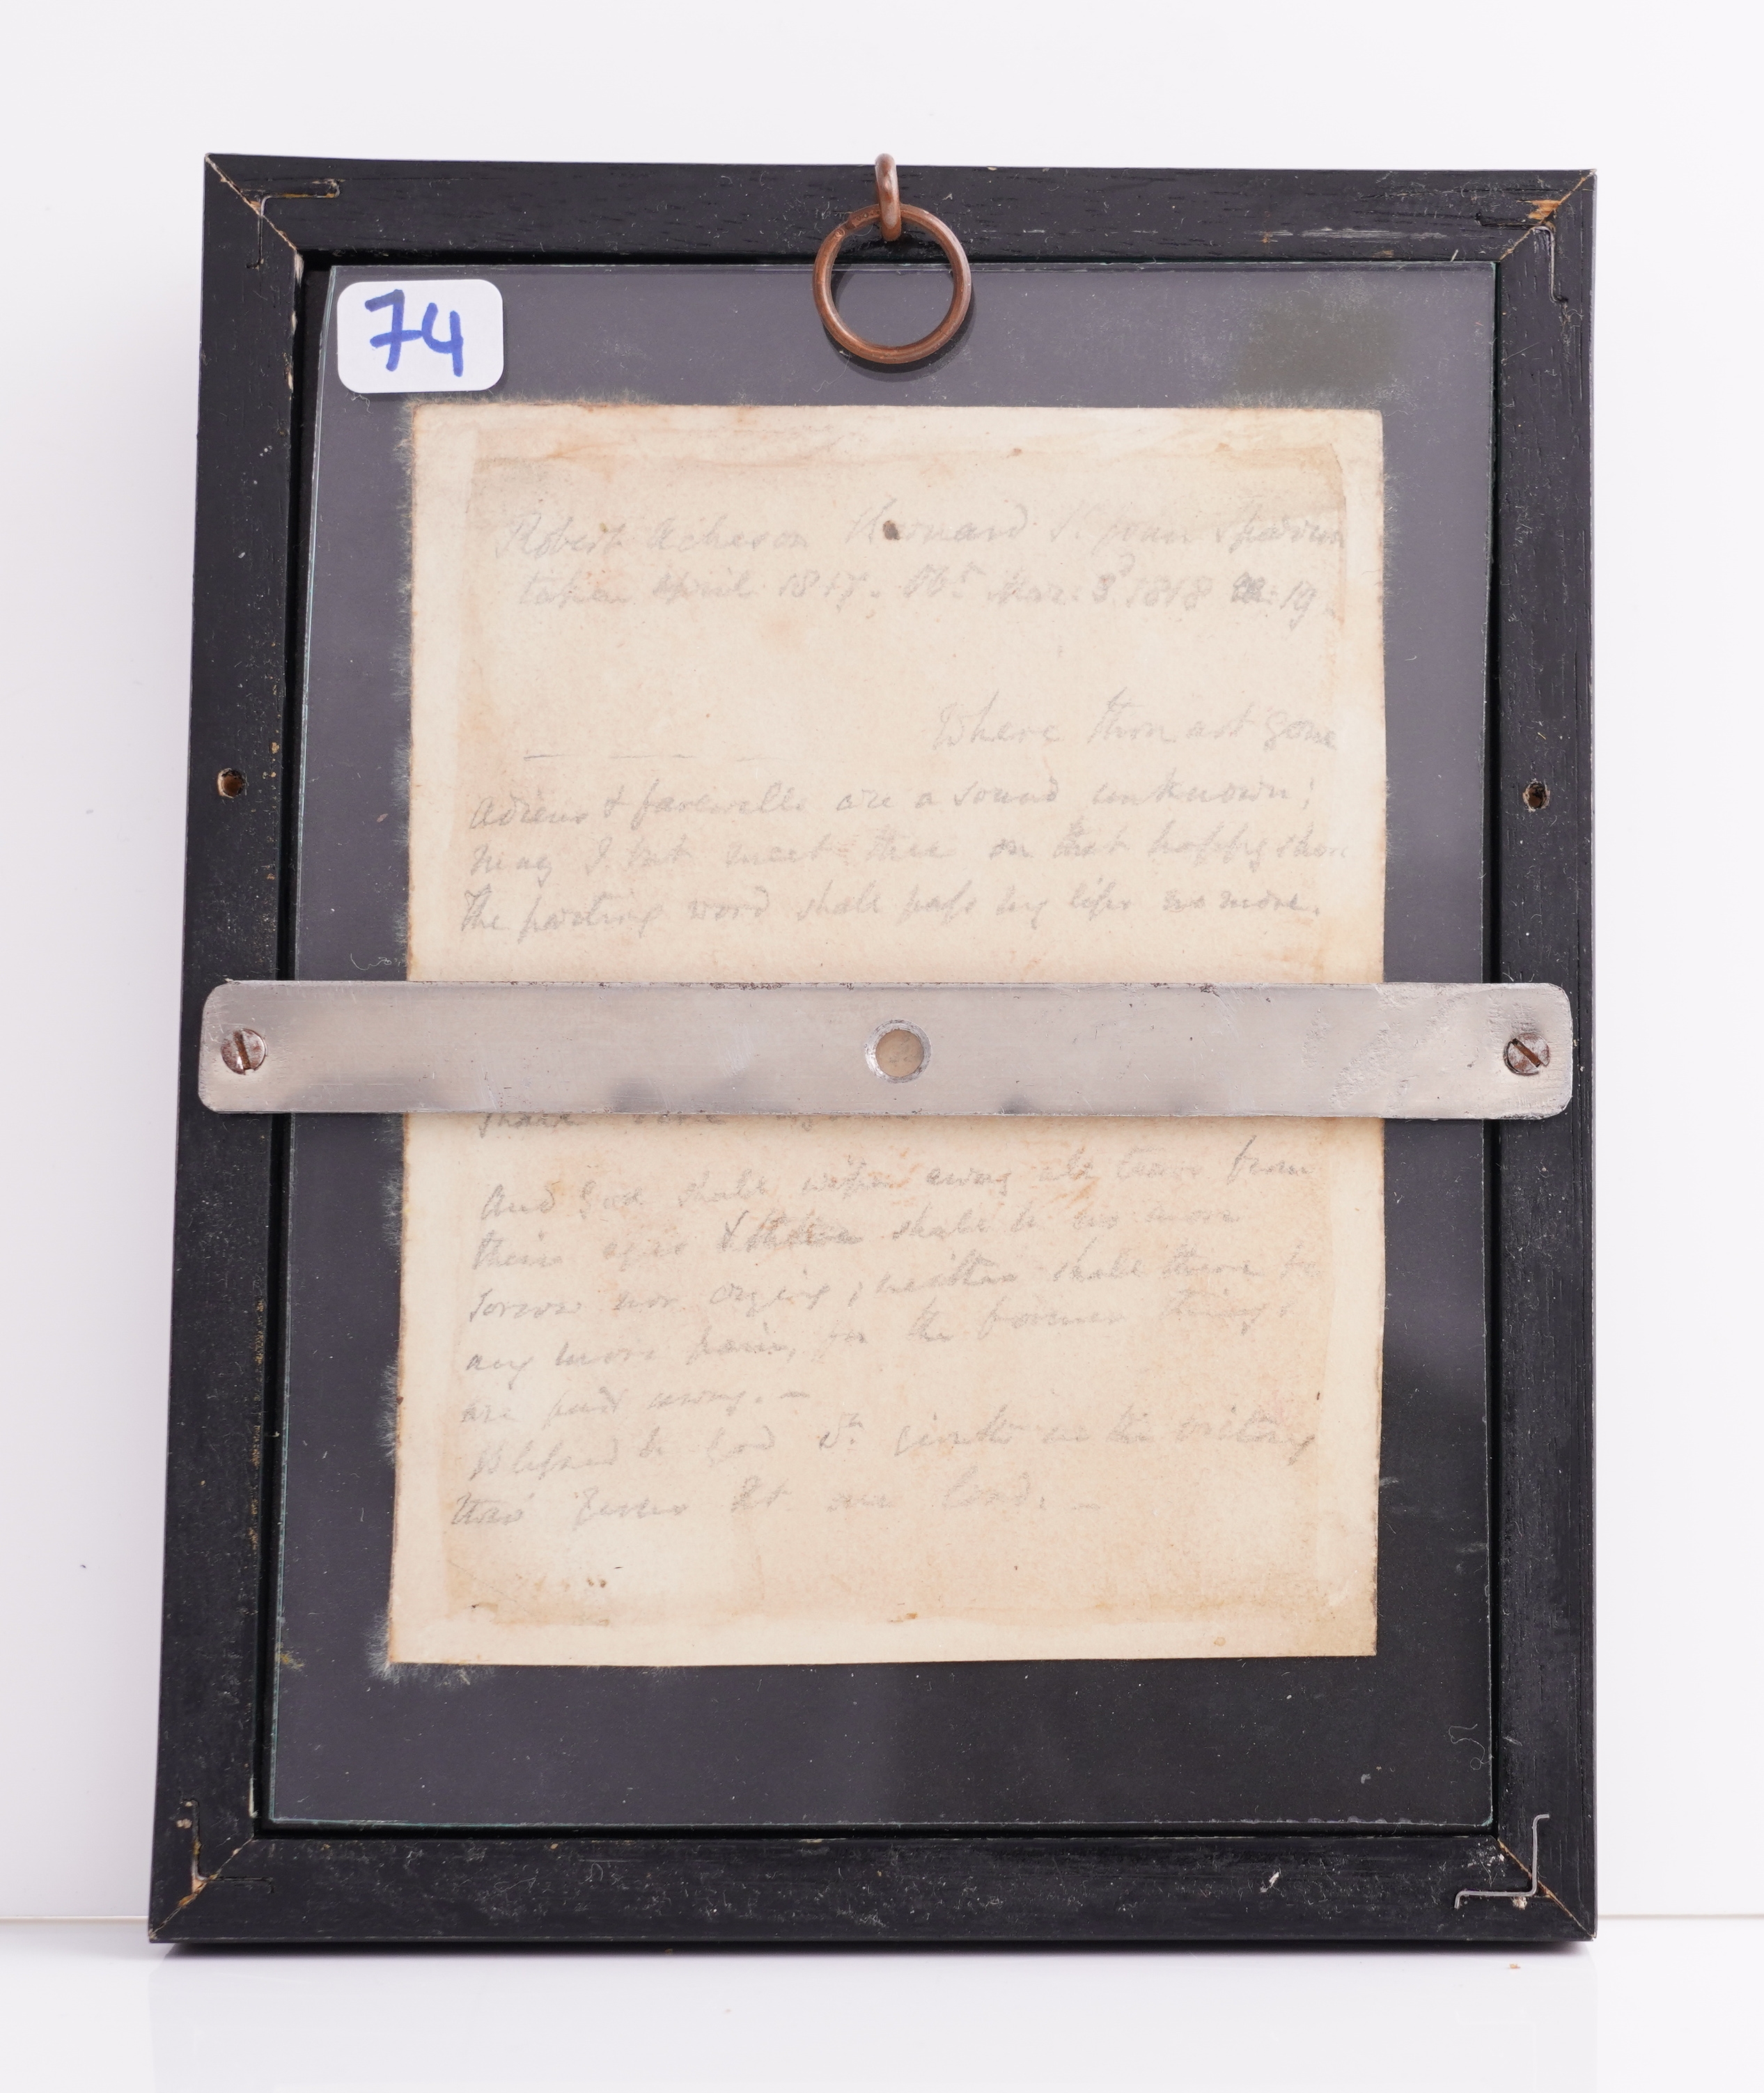 74
Robert Acheson
taken April 1817. Obt Mar: 3d 1818 Æ: 19.
Where thou art gone
Adieus & farewells are a sound unknown;
May I but meet thee on that happy shore
The parting word shall pass my lips no more.
And God shall wipe away all tears from
their eyes & there shall be no more
sorrow nor crying; neither shall there be
any more pain, for the former things
are past away. —
Blessed be God wh giveth us the victory
thro' Jesus our Lord. —